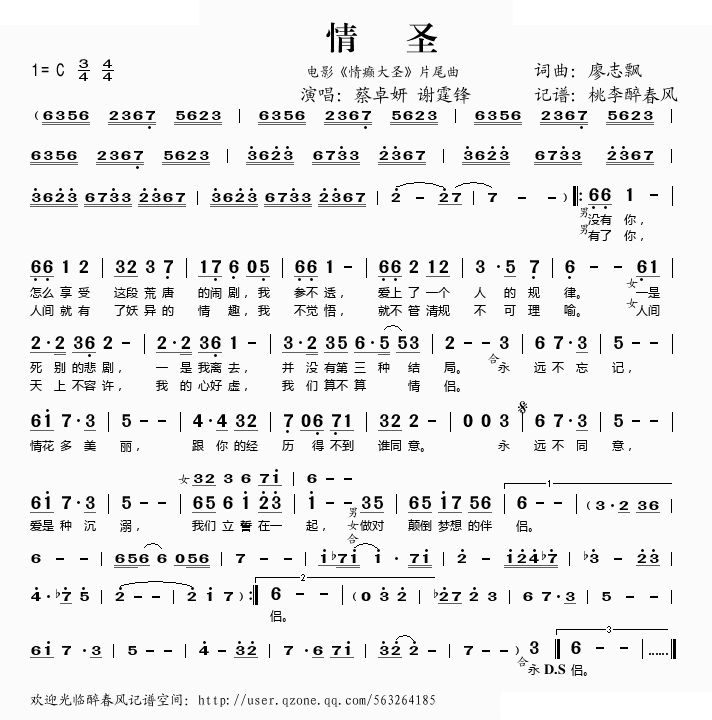 情 圣
1= C 3/4 4/4
电影《情癫大圣》片尾曲
词曲：廖志飘
演唱：蔡卓妍 谢霆锋
记谱：桃李醉春风
( 6356 2367 5623 | 6356 2367 5623 | 6356 2367 5623
6356 2367 5623 | 3623 6733 2367 | 3623 6733 2367
3623 6733 2367 | 3623 6733 2367 | 2 - 27 | 7 - - ) ‖: 66 1 - |
男 没有 你，
男 有了 你，
66 1 2 | 32 3 7 | 17 6 05 | 66 1 - | 66 2 12 | 3 · 5 7 | 6 - - 61 |
怎么 享 受 这段 荒 唐 的闹 剧，我 参不 透， 爱上 了 一个 人 的 规 律。 女 一是
人间 就 有 了妖 异 的 情 趣，我 不觉 悟， 就不 管 清规 不 可 理 喻。 女 人间
2 · 2 36 2 - | 2 · 2 36 1 - | 2 · 2 3 35 6 · 5 53 | 2 - - 3 | 6 7 · 3 | 5 - - |
死 别 的悲 剧， 一 是 我离 去， 并 没 有第 三 种 结 局。 合 永 远 不 忘 记，
天 上 不容 许， 我 的 心好 虚， 我 们 算不 算 情 侣。
61 7 · 3 | 5 - - | 4 · 4 32 | 7 06 71 | 32 2 - | 0 0 3 | 6 7 · 3 | 5 - - |
情花 多 美 丽， 跟 你 的经 历 得 不到 谁同 意。 永 远 不 同 意，
女 32 3 6 71 | 6 - -
61 7 · 3 | 5 - - | 65 6 1 23 | 1 - 35 | 65 17 56 | 6 - - | ( 3 · 2 36
1
爱是 种 沉 溺， 我们 立 誓 在一 起， 男 女 合 做对 颠倒 梦想 的伴 侣。
6 - - | 656 6 056 | 7 - - | 1b71 1 · 71 | 2 - 124b7 | b3 - 23 |
4 · b7 5 | 2 - - | 2 1 7 ) :‖ 6 - - | ( 0 3 2 | b27 2 3 | 6 7 3 | 5 - - |
2
侣。
61 7 · 3 | 5 - - | 4 - 32 | 7 · 6 71 | 32 2 - | 7 - - ) 3 ‖ 6 - - | …… ‖
3
合 永 D.S 侣。
欢迎光临醉春风记谱空间：http://user.qzone.qq.com/563264185